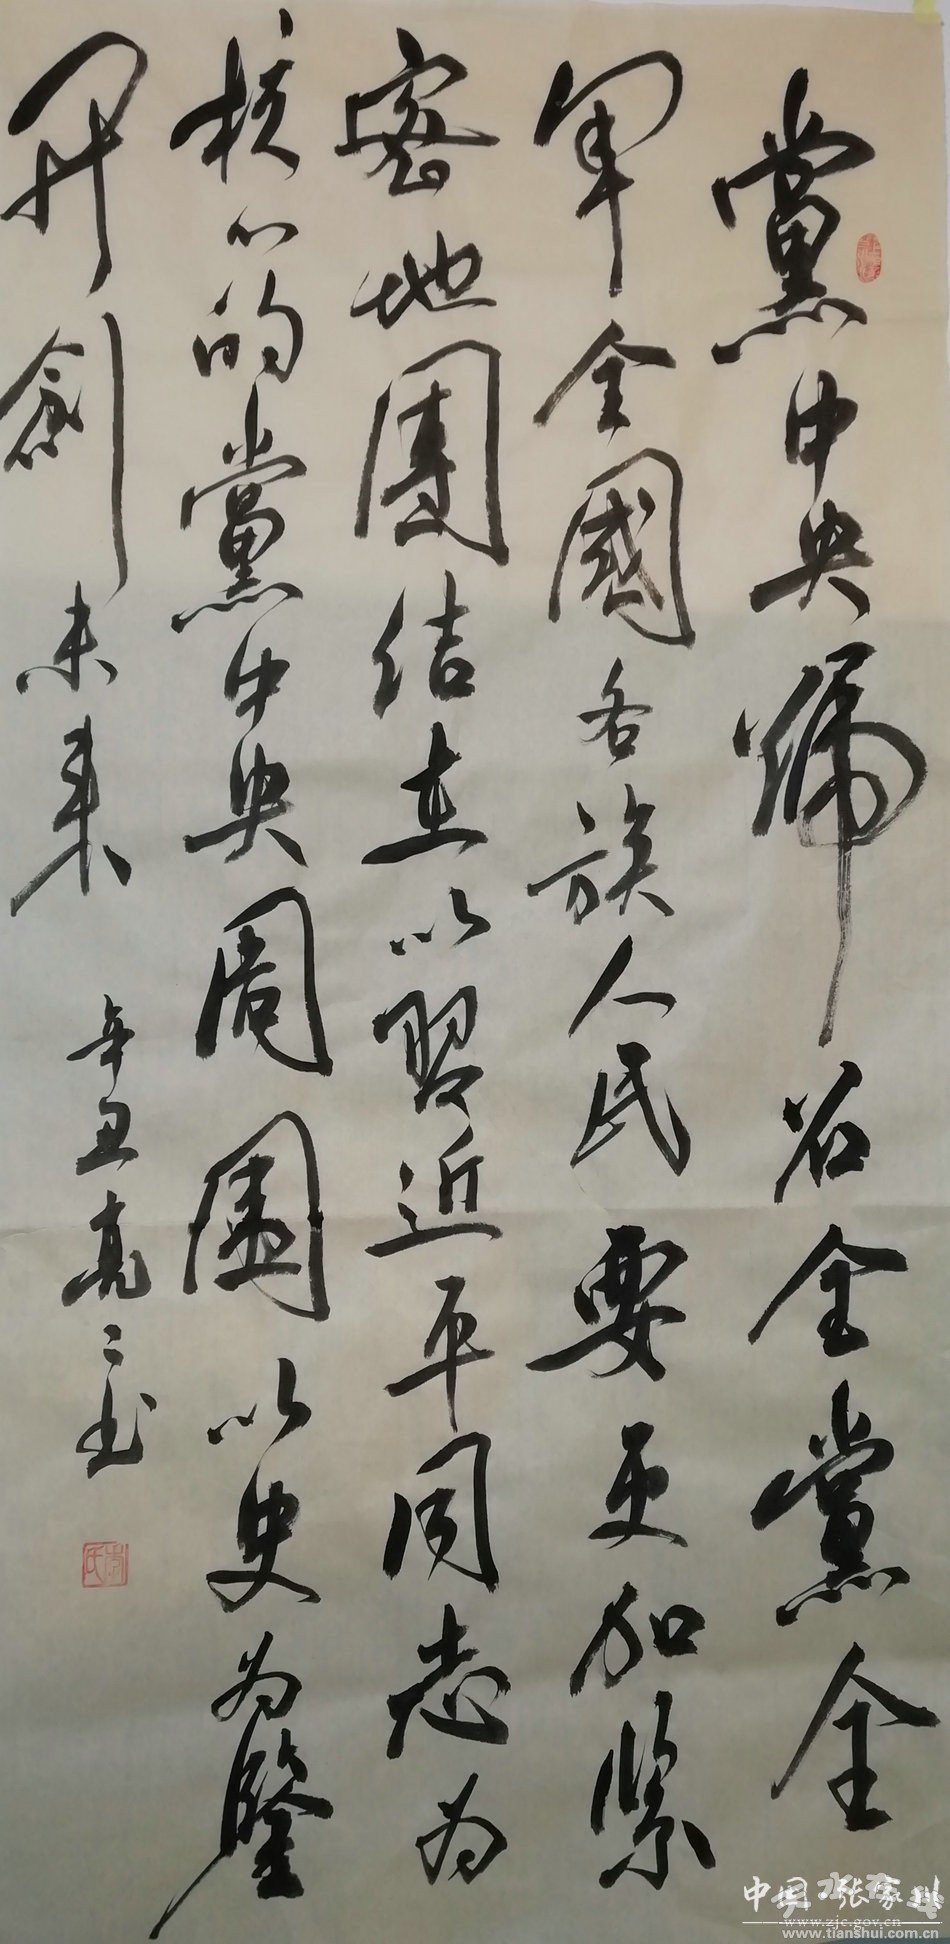 黨中央號召全黨全
軍全國各族人民要更加緊
密地團結在以習近平同志为
核心的黨中央周圍以史为鑒
開創未来
辛丑亮亮书
中国·张家川
www.zjc.gov.cn
www.tianshui.com.cn